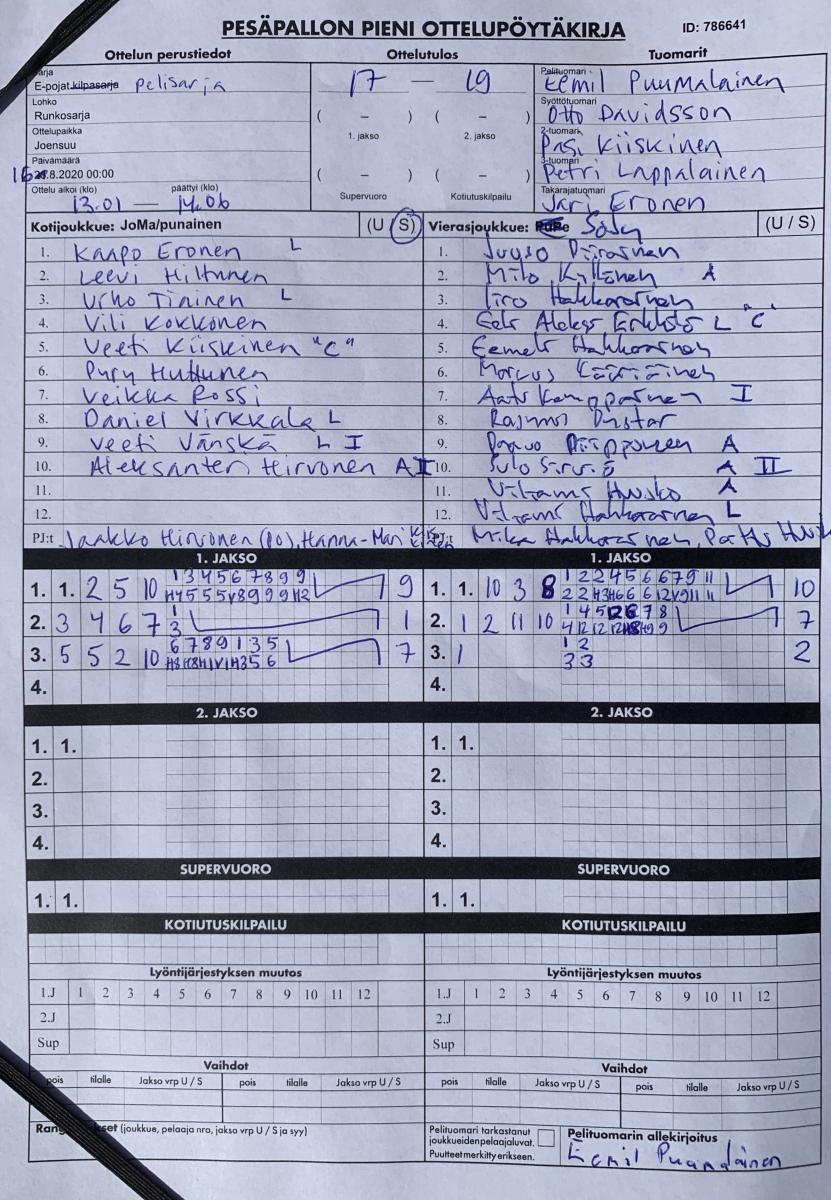 PESÄPALLON PIENI OTTELUPÖYTÄKIRJA ID: 786641
Ottelun perustiedot Ottelutulos Tuomarit
Sarja
E-pojat kilpasarja pelisarja
17 — 19
Pelituomari
Eemil Puumalainen
Lohko
Runkosarja
( – ) ( – )
1. jakso 2. jakso
Syöttötuomari
Otto Davidsson
Ottelupaikka
Joensuu
2-tuomari
Pasi Kiiskinen
Päivämäärä
8.2020 00:00
( – ) ( – )
Supervuoro Kotiutuskilpailu
3-tuomari
Petri Lappalainen
Ottelu alkoi (klo) päättyi (klo)
13.01 — 14.06
Takarajatuomari
Jari Eronen
Kotijoukkue: JoMa/punainen (U S)
1. Kaapo Eronen L
2. Leevi Hiltunen
3. Urho Tininen L
4. Vili Kokkonen
5. Veeti Kiiskinen "C"
6. Pyry Huttunen
7. Veikka Rossi
8. Daniel Virkkala L
9. Veeti Vänskä L I
10. Aleksanteri Hirvonen A II
11.
12.
PJ:t Jaakko Hirvonen (PO), Hanna-Mari
Vierasjoukkue: PuPe SoJy (U / S)
1. Juuso Piirainen
2. Milo Kyllönen A
3. Iiro Hakkarainen
4. Eelr Aleksr L "C"
5. Eemelr Hakkarainen
6. Marcus Kääriäinen
7. I
8. Rasmus
9. Paavo Piipponen A
10. Sulo A II
11. Viljami Husko A
12. Viljami Hakkarainen L
PJ:t Mika Hakkarainen,
1. JAKSO
1. 1. 2 5 10 1 3 4 5 6 7 8 9 9 9
2. 3 4 6 7 1 1
3
3. 5 5 2 10 6 7 8 9 1 3 5 7
4.
1. JAKSO
1. 1. 10 3 8 1 2 2 4 5 6 6 7 9 11 10
2. 1 2 11 10 1 4 5 12 6 7 8 7
3. 1 1 2 2
3 3
4.
2. JAKSO
1. 1.
2.
3.
4.
2. JAKSO
1. 1.
2.
3.
4.
SUPERVUORO
1. 1.
SUPERVUORO
1. 1.
KOTIUTUSKILPAILU
KOTIUTUSKILPAILU
Lyöntijärjestyksen muutos
1.J 1 2 3 4 5 6 7 8 9 10 11 12
2.J
Sup
Lyöntijärjestyksen muutos
1.J 1 2 3 4 5 6 7 8 9 10 11 12
2.J
Sup
Vaihdot
pois tilalle Jakso vrp U / S pois tilalle Jakso vrp U / S
Vaihdot
pois tilalle Jakso vrp U / S pois tilalle Jakso vrp U / S
(joukkue, pelaaja nro, jakso vrp U / S ja syy)
Pelituomari tarkastanut
joukkueidenpelaajaluvat.
Puutteet merkitty erikseen.
Pelituomarin allekirjoitus
Eemil Puumalainen